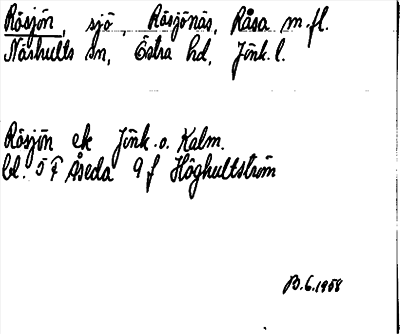 Råsjön, sjö, Råsjönäs, Råsa m.fl.
Näshults sn, Östra hd, Jönk. l.
Råsjön ek Jönk. o. Kalm.
bl. 5 F Åseda 9 f Höghultström
B.G. 1958